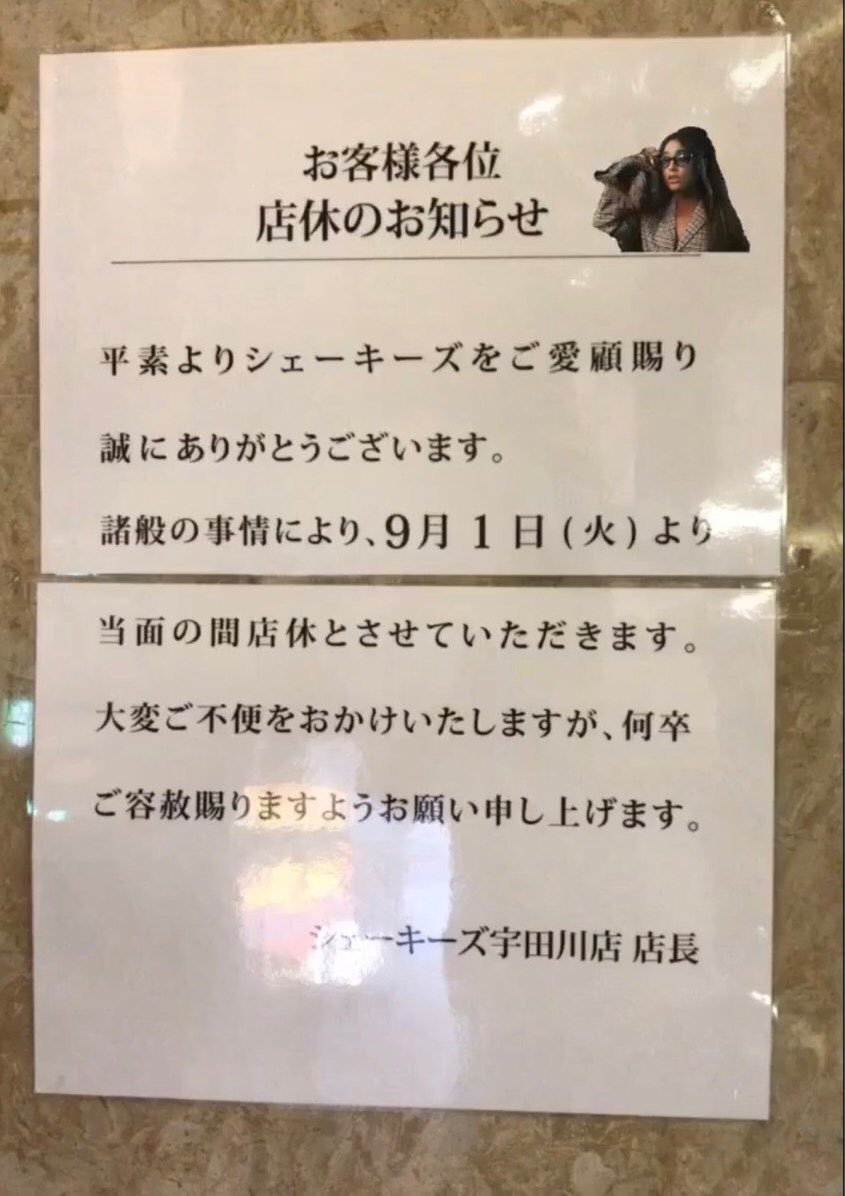 お客様各位
店休のお知らせ
平素よりシェーキーズをご愛顧賜り
誠にありがとうございます。
諸般の事情により、9月1日(火)より
当面の間店休とさせていただきます。
大変ご不便をおかけいたしますが、何卒
ご容赦賜りますようお願い申し上げます。
シェーキーズ宇田川店 店長